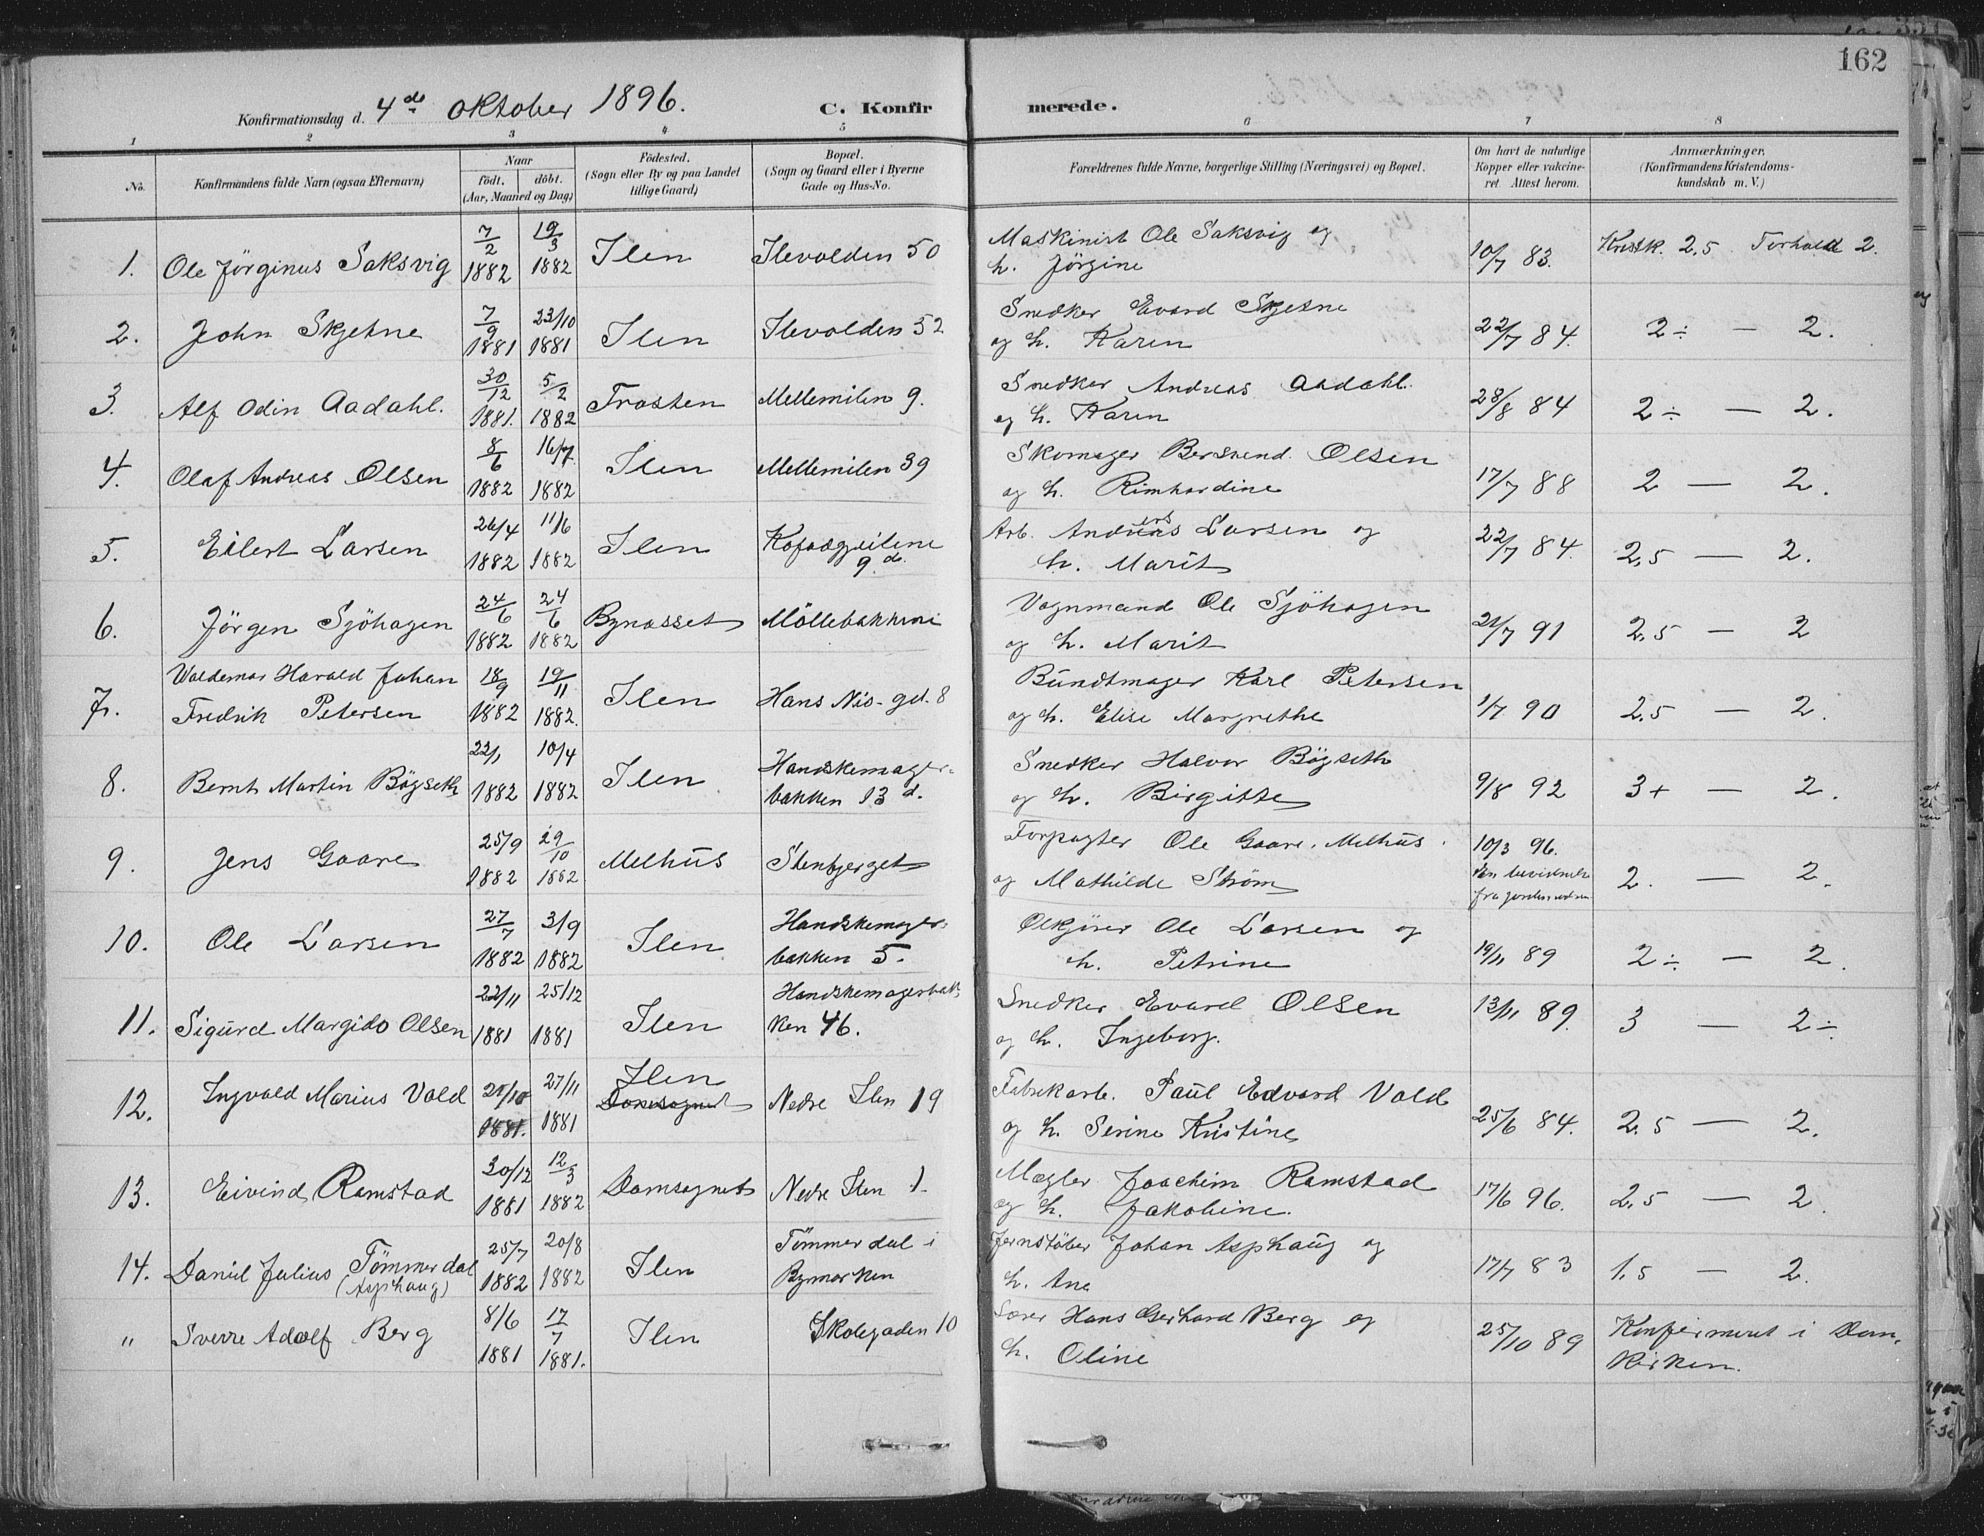 162
Konfirmationsdag d. 4de Oktober 1896. C. Konfirmerede.
1 2 3 4 5 6 7 8
No. Konfirmandens fulde Navn (ogsaa Efternavn) Naar födt. döbt. (Aar, Maaned og Dag) Födested. (Sogn eller By og paa Landet tillige Gaard) Bopæl. (Sogn og Gaard eller i Byerne Gade og Hus-No. Forældrenes fulde Navne, borgerlige Stilling (Næringsvei) og Bopæl. Om havt de naturlige Kopper eller vakcineret Attest herom. Anmærkninger, (Konfirmandens Kristendomskundskab m. V.)
1. Ole Jörginus Saksvig 7/2 1882 19/3 1882 Ilen Ilevolden 50 Maskinist Ole Saksvig og h. Jörgine 10/7 83. Kristk. 2,5 Forhold 2.
2. John Skjetne 7/9 1881 23/10 1881 Ilen Ilevolden 52 Snedker Evard Skjetne og h. Karen 22/7 84. 2÷ — 2.
3. Alf Odin Aadahl. 30/12 1881. 5/2 1882 Frosten Mellemilen 9. Snedker Andreas Aadahl. og h. Karen 28/8 84 2÷ — 2.
4. Olaf Andreas Olsen 8/6 1882 16/7 1882 Ilen Mellemilen 39 Skomager Bersvend Olsen og h. Rimhardine 17/7 88 2 — 2.
5. Eilert Larsen 26/4 1882 11/6 1882 Ilen 9 d. Arb. Larsen og h. Marit 22/7 84. 2,5 — 2.
6. Jörgen Sjöhagen 24/6 1882 24/6 1882 Bynæsset Möllebakkene Vognmand Ole Sjöhagen og h. Marit 21/7 91 2,5 — 2
7. Waldemar Harald Johan Fredrik Petersen 18/9 1882 19/11 1882. Ilen Hans Nis-gd. 8 Bundtmager Karl Petersen og h. Elise Margrethe 1/7 90 2,5 — 2.
8. Bernt Martin Bögseth 22/1 1882 10/4 1882 Ilen Handskemagerbakken 13 d. Snedker Halvor Bögseth og h. Birgitte 9/8 92 3+ — 2.
9. Jens Gaare 25/9 1882 29/10 1882 Melhus Stenbjerget Forpagter Ole Gaare, Melhus. og Mathilde Ström 10/3 96. 2. — 2.
10. Ole Larsen 27/7 1882 3/9 1882 Ilen Handskemagerbakken 5. Ölkjörer Ole Larsen og h. Petrine 19/11 89 2÷ — 2.
11. Sigurd Margido Olsen 22/11 1881 25/12 1881 Ilen Handskemagerbakken 46. Snedker Evard Olsen og h. Ingeborg. 13/11 89. 3 — 2÷
12. Ingvald Marius Vold 1881. 27/11 1881 Ilen Domsognet Nedre Ilen 19 Fabrikarb. Paul Edvard Vold og h. Serine Kristine 25/6 84. 2,5 — 2.
13. Eivind Ramstad 30/12 1881 12/3 1882 Domsognet Nedre Ilen 1. Mægler Joachim Ramstad og h. Jakobine. 17/6 96. 2,5 — 2.
14. Daniel Julius Tömmerdal (Asphaug) 25/7 1882 20/8 1882 Ilen Tömmerdal i Bymarken Jernstöber Johan Asphaug og h. Ane 17/7 83 1,5 — 2.
" Sverre Adolf Berg 8/6 1881 17/7 1881. Ilen Skolegaden 10 Hans Gerhard Berg og h. Oline 25/10 89 Konfirmeret i Domkirken.